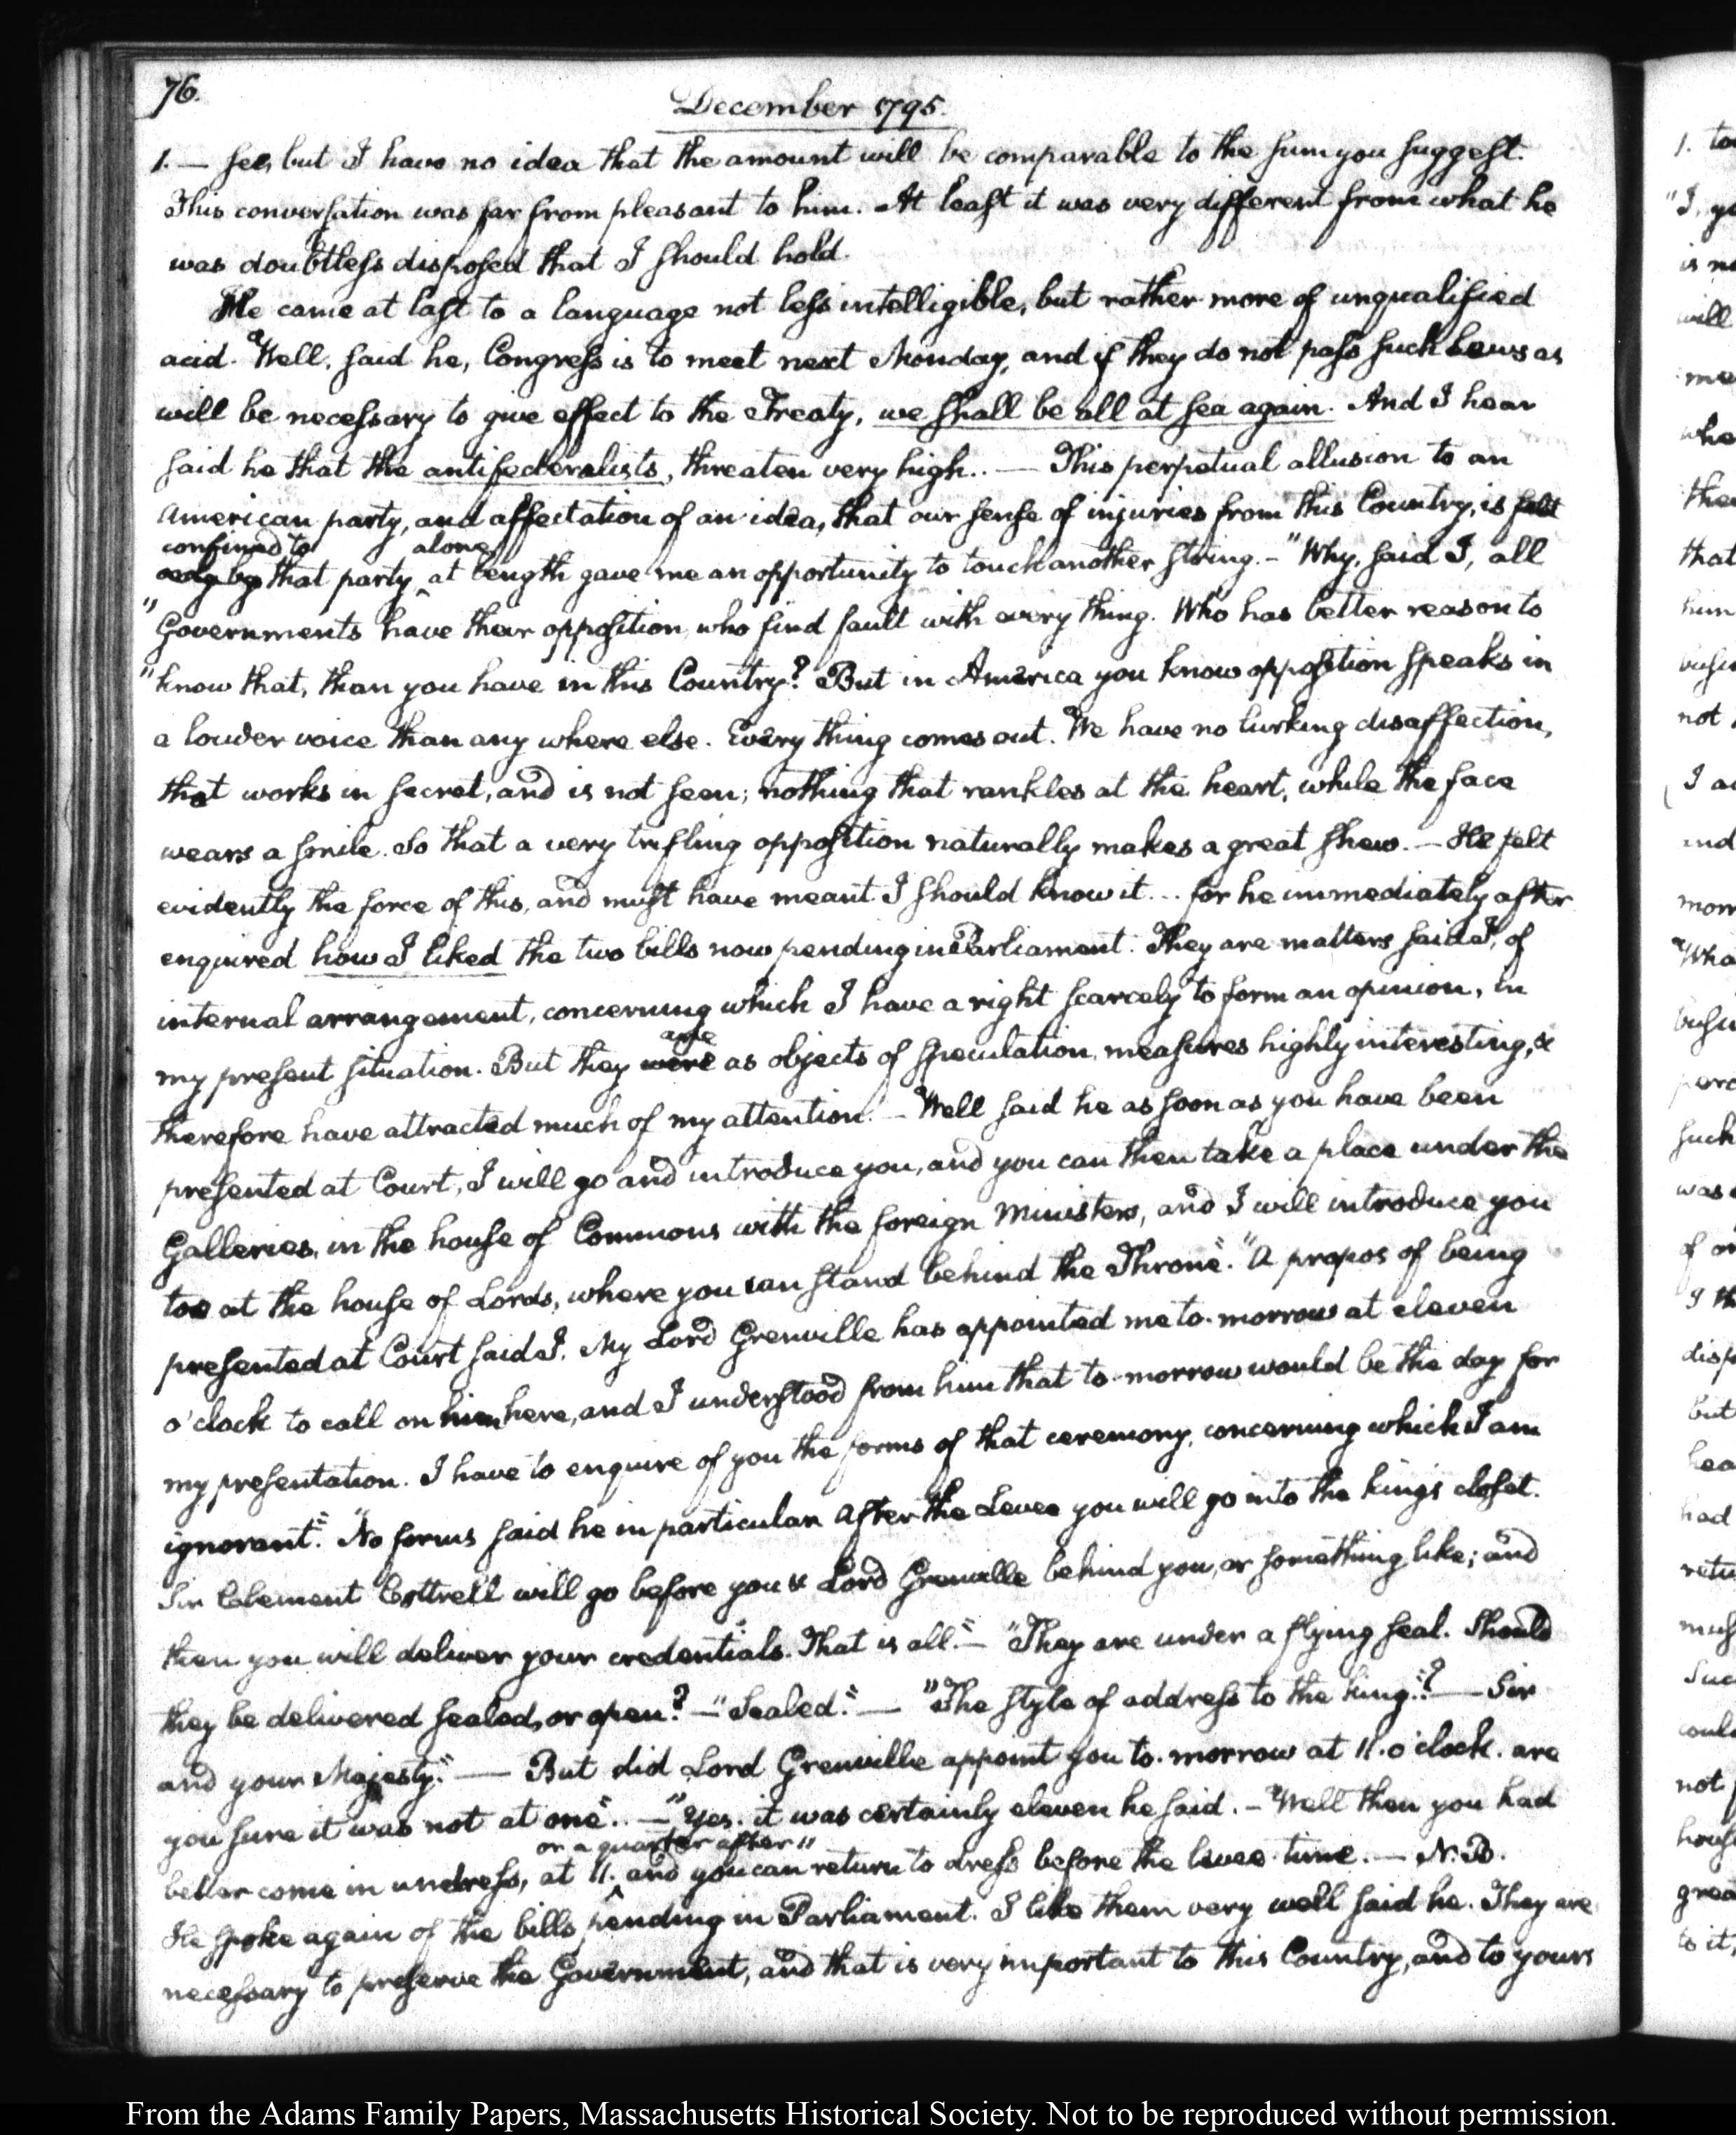 76.
December 1795.
1. — see, but I have no idea that the amount will be comparable to the sum you suggest.
This conversation was far from pleasant to him. At least it was very different from what he
was doubtless disposed that I should hold.
He came at last to a language not less intelligible, but rather more of unqualified
acid. "Well, said he, Congress is to meet next Monday, and if they do not pass such Laws as
will be necessary to give effect to the Treaty, we shall be all at sea again. And I hear
said he that the antifederalists, threaten very high.. — This perpetual allusion to an
American party, and affectation of an idea, that our sense of injuries from this Country, is felt
confined to alone
only by that party ^ at length gave me an opportunity to touch another string. – "Why, said I, all
"Governments have their opposition, who find fault with every thing. Who has better reason to
"know that, than you have in this Country? But in America you know opposition speaks in
a louder voice than any where else. Every thing comes out. We have no lurking disaffection,
that works in secret, and is not seen; nothing that rankles at the heart, while the face
wears a smile. So that a very trifling opposition naturally makes a great shew. — He felt
evidently the force of this, and must have meant I should know it... for he immediately after
enquired how I liked the two bills now pending in Parliament. They are matters said I, of
internal arrangement, concerning which I have a right scarcely to form an opinion, in
are
my present situation. But they were as objects of speculation, measures highly interesting, &
therefore have attracted much of my attention. — Well said he as soon as you have been
presented at Court, I will go and introduce you, and you can then take a place under the
Galleries, in the house of Commons with the foreign Ministers, and I will introduce you
too at the house of Lords, where you can stand behind the Throne". "A propos of being
presented at Court said I. My Lord Grenville has appointed me to-morrow at eleven
o'clock to call on him here, and I understood from him that to-morrow would be the day for
my presentation. I have to enquire of you the forms of that ceremony, concerning which I am
ignorant". "No forms said he in particular. After the Levee you will go into the king's closet.
Sir Clement Cottrell will go before you & Lord Grenville behind you, or something like; and
then you will deliver your credentials. That is all." — "They are under a flying seal. Should
they be delivered sealed, or open? — "Sealed." — "The style of address to the king."? — Sir
and your Majesty." — But did Lord Grenville appoint you to-morrow at 11. o'clock. are
you sure it was not at one". — "Yes. it was certainly eleven he said. – "Well then you had
or a quarter after"
better come in undress, at 11. ^ and you can return to dress before the levee time. — N.B.
He spoke again of the bills, pending in Parliament. I like them very well said he. They are
necessary to preserve the Government, and that is very important to this Country, and to yours
From the Adams Family Papers, Massachusetts Historical Society. Not to be reproduced without permission.